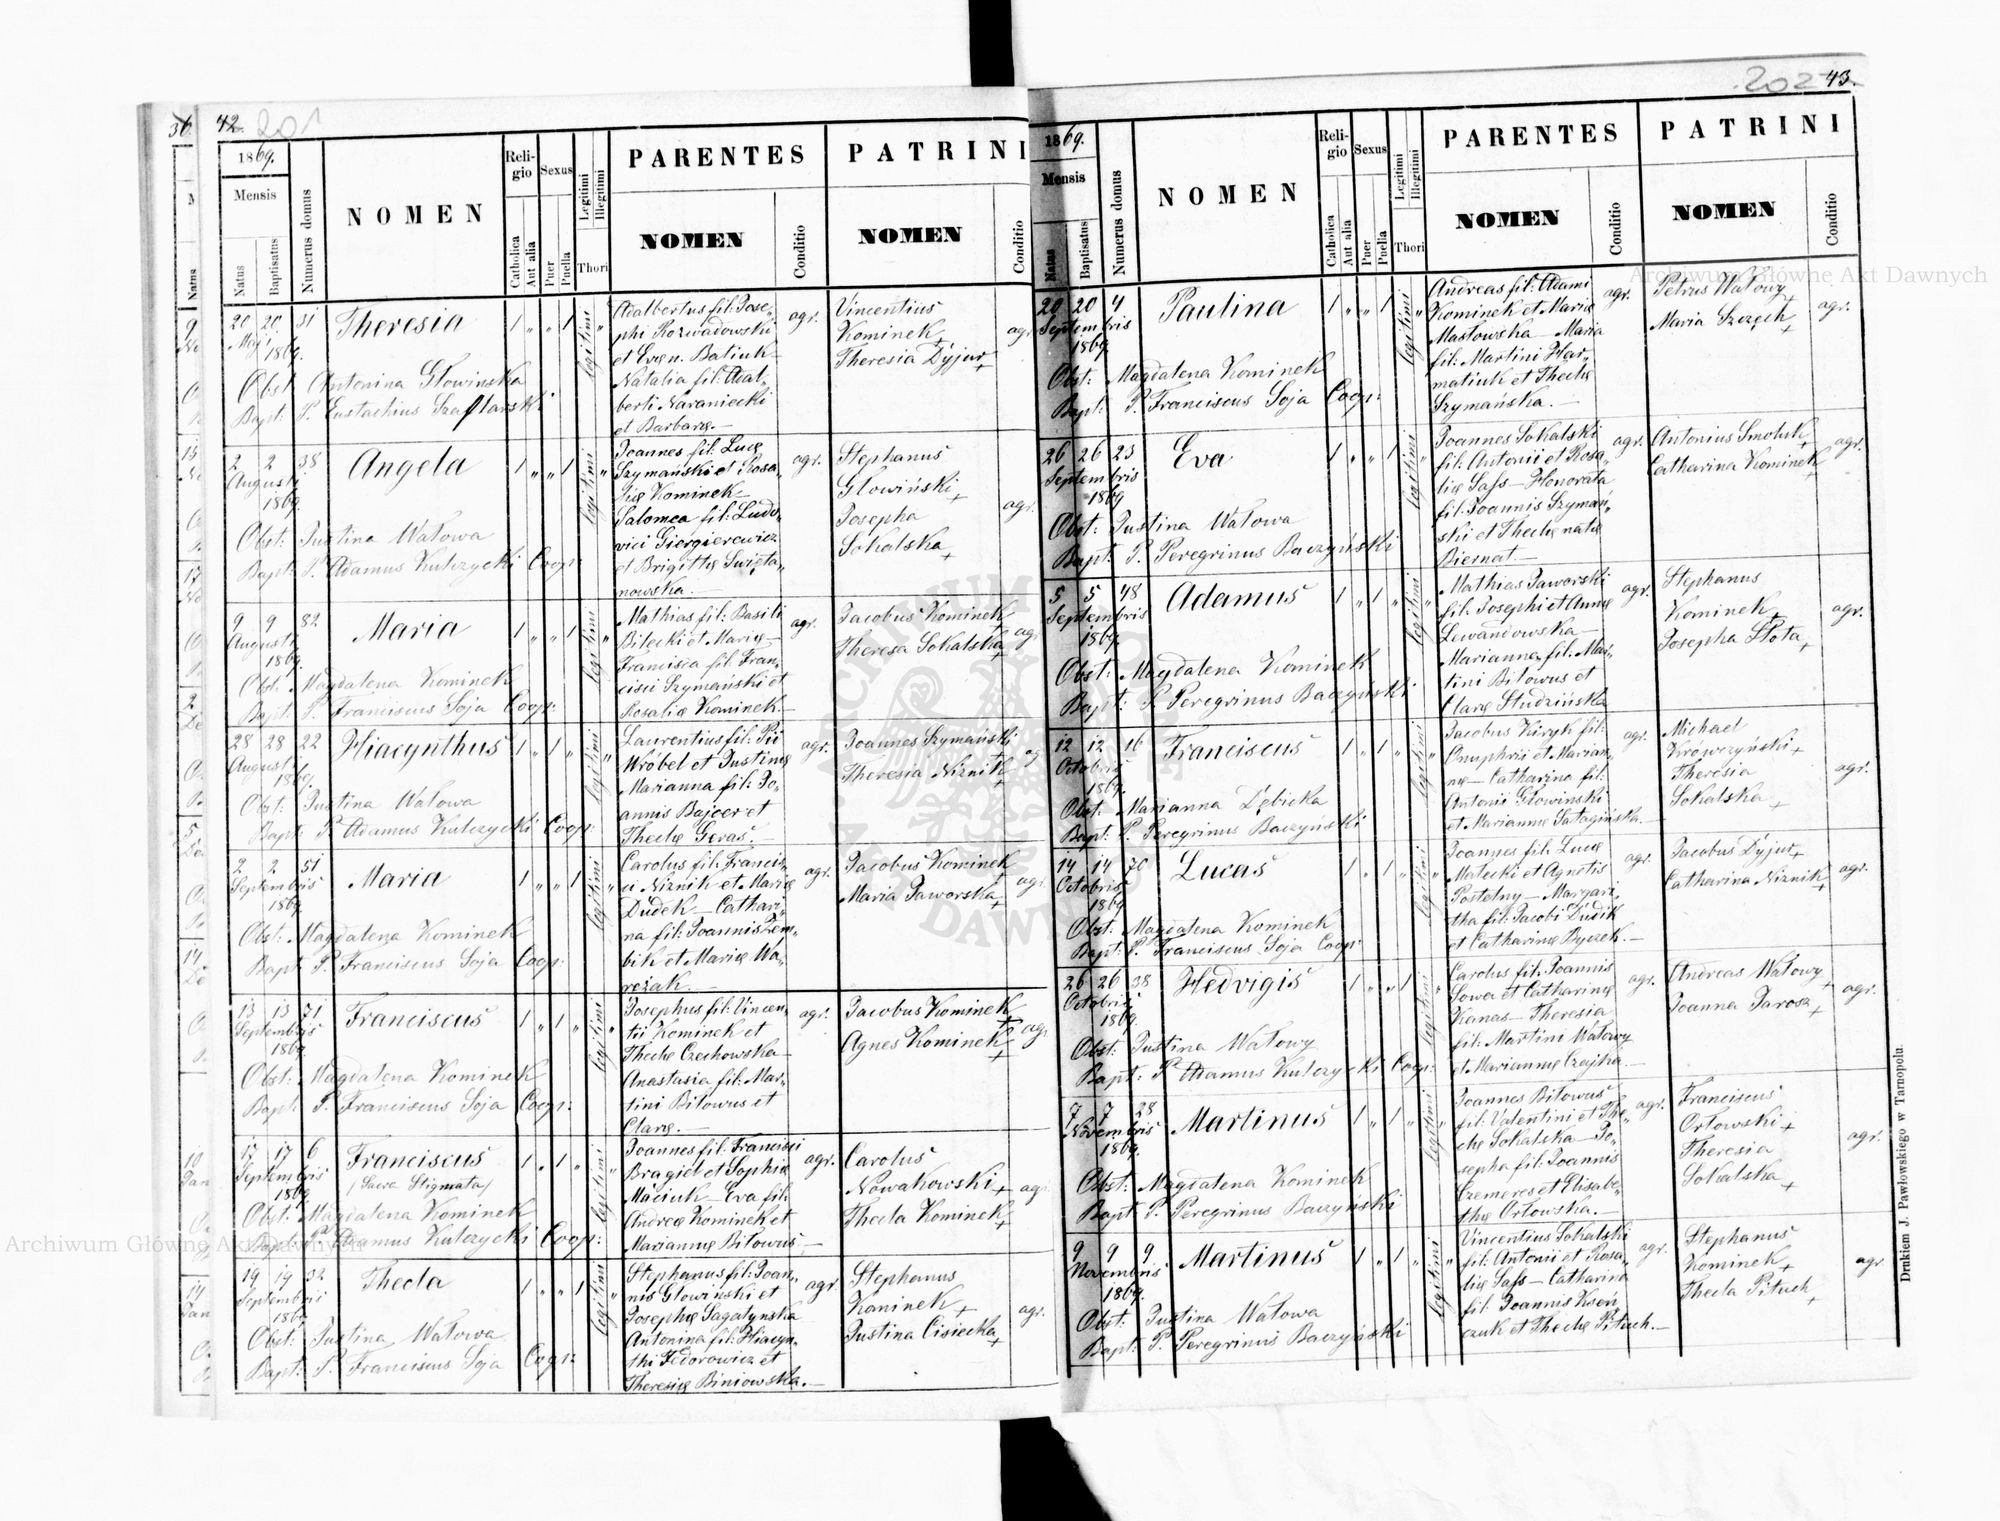 36.
42. 201
1869.
Mensis
Natus
Baptisatus
Numerus domus
NOMEN
Religio
Catholica
Aut alia
Sexus
Puer
Puella
Legitimi
Illegitimi
Thori
PARENTES
NOMEN
Conditio
PATRINI
NOMEN
Conditio
20 20 31 Theresia 1 „ „ 1 legitimi „
Maji
1869.
Obst. Antonina Głowinska
Bapt: P. Eustachius Szaflarski
Adalbertus fil: Jose-
phi Rozwadowski
et Even. Batiuk—
Natalia fil: Adal-
berti Naraniecki
et Barbarę.—
agr.
Vincentius
Kominek+
Theresia Dyjur+
agr.
2 2 38 Angela 1 „ „ 1 legitimi „
Augusti
1869.
Obst: Justina Watowa
Bapt: P. Adamus Kulczycki Coop:
Joannes fil: Lucę
Szymański et Rosa-
lię Kominek—
Salomea fil: Ludo-
vici Giergierewicz
et Brigittę Święta-
nowska.—
agr.
Stephanus
Głowiński+
Josepha
Sokalska+
agr.
9 9 82 Maria 1 „ „ 1 legitimi „
Augusti
1869.
Obst: Magdalena Kominek
Bapt: P. Franciscus Soja Coop:
Mathias fil: Basili
Bilecki et Marię—
Francisca fil: Fran-
cisci Szymański et
Rosalię Kominek.—
agr.
Jacobus Kominek
Theresa Sokalska+
agr
28 28 22 Hiacynthus 1 „ 1 „ legitimi „
Augusti
1869.
Obst: Justina Watowa
Bapt: P. Adamus Kulczycki Coop:
Laurentius fil: Pii
Wróbel et Justinę
Marianna fil: Jo-
annis Bajcer et
Theclę Geras.—
agr.
Joannes Szymański
Theresia Niznik+
2 2 51 Maria 1 „ „ 1 legitimi „
Septembris
1869.
Obst: Magdalena Kominek
Bapt: P. Franciscus Soja Coop:
Carolus fil: Francis-
ci Niznik et Marię
Dudek— Cathari-
na fil: Joannis Zem-
bik et Marię Wa-
rezak.—
agr.
Jacobus Kominek+
Maria Jaworska+
agr.
13 13 71 Franciscus 1 „ 1 „ legitimi „
Septembris
1869.
Obst: Magdalena Kominek
Bapt: P. Franciscus Soja Coop:
Josephus fil: Vincen-
tii Kominek et
Theclę Czechowska—
Anastasia fil: Mar-
tini Bitowus et
Clarę.—
agr.
Jacobus Kominek+
Agnes Kominek+
agr.
17 17 6 Franciscus 1 „ 1 „ legitimi „
Septembris /Sacra Stigmata/
1869
Obst. Magdalena Kominek
Bapt: P. Adamus Kulczycki Coop:
Joannes fil: Francisci
Bragiel et Sophię
Maciuk— Eva fil:
Andreę Kominek et
Mariannę Bitowus—
agr.
Carolus
Nowakowski+
Thecla Kominek+
agr.
19 19 32 Thecla 1 „ „ 1 legitimi „
Septembris
1869
Obst: Justina Watowa
Bapt: P. Franciscus Soja Coop:
Stephanus fil: Joan-
nis Głowiński et
Josephę Sagatynska
Antonina fil: Hiacyn-
thi Fedorowicz et
Theresię Biniowska.—
agr.
Stephanus
Kominek+
Justina Cisiecka+
agr.
202 43.
1869.
Mensis
Natus
Baptisatus
Numerus domus
NOMEN
Religio
Catholica
Aut alia
Sexus
Puer
Puella
Legitimi
Illegitimi
Thori
PARENTES
NOMEN
Conditio
PATRINI
NOMEN
Conditio
20 20 4 Paulina 1 „ „ 1 legitimi „
Septembris
1869.
Obst: Magdalena Kominek
Bapt: P. Franciscus Soja Coop:
Andreas fil: Adami
Kominek et Marię
Masłowska— Maria
fil: Martini Har-
matiuk et Theclę
Szymańska.—
agr.
Petrus Watowy+
Maria Szczęch+
agr.
26 26 23 Eva 1 „ „ 1 legitimi „
Septembris
1869
Obst: Justina Watowa
Bapt: P. Peregrinus Baczyński
Joannes Sokalski
fil: Antonii et Rosa-
lię Sass— Honorata
fil: Joannis Szymań-
ski et Theclę natę
Biernat—
agr.
Antonius Smoluk+
Catharina Kominek+
agr.
5 5 48 Adamus 1 „ 1 „ legitimi „
Septembris
1869.
Obst: Magdalena Kominek
Bapt: P. Peregrinus Baczyński
Mathias Jaworski
fil: Josephi et Annę
Lewandowska—
Marianna fil: Mar-
tini Bitowus et
Clarę Studzińska
agr.
Stephanus
Kominek+
Josepha Słota+
agr.
12 12 16 Franciscus 1 „ 1 „ legitimi „
Octobris
1869.
Obst: Marianna Dębicka
Bapt: P. Peregrinus Baczyński
Jacobus Kiryk fil:
Onuphrii et Marian-
nę— Catharina fil:
Antonii Głowinski
et Mariannę Satagińska.—
agr.
Michael
Krowczyński+
Theresia
Sokalska+
agr.
14 14 70 Lucas 1 „ 1 „ legitimi „
Octobris
1869
Obst: Magdalena Kominek
Bapt: P. Franciscus Soja Coop:
Joannes fil: Lucę
Małecki et Agnetis
Postelny— Margari-
tha fil: Jacobi Dudik
et Catharinę Byczek.—
agr.
Jacobus Dyjur+
Catharina Niznik+
agr.
26 26 38 Hedvigis 1 „ „ 1 legitimi „
Octobris
1869.
Obst: Justina Watowy
Bapt: P. Adamus Kulczycki Coop:
Carolus fil: Joannis
Sowa et Catharinę
Kanas— Theresia
fil: Martini Watowy
et Mariannę Czajka.—
agr.
Andreas Watowy+
Joanna Jarosz+
agr.
7 7 28 Martinus 1 „ 1 „ legitimi „
Novembris
1869.
Obst: Magdalena Kominek
Bapt: P. Peregrinus Baczyński
Joannes Bitowus
fil: Valentini et The-
clę Sokalska— Jo-
sepha fil: Joannis
Czemeres et Elisabe-
thę Orłowska.—
agr.
Franciscus
Orłowski+
Theresia
Sokalska+
agr.
9 9 9 Martinus 1 „ 1 „ legitimi „
Novembris
1869.
Obst: Justina Watowa
Bapt: P. Peregrinus Baczyński
Vincentius Sokalski
fil: Antonii et Rosa-
lię Sass— Catharina
fil: Joannis Kseń-
czuk et Theclę Pituch.—
agr.
Stephanus
Kominek+
Thecla Pituch+
agr.
Drukiem J. Pawłowskiego w Tarnopolu.
Archiwum Główne Akt Dawnych
Archiwum Główne Akt Dawnych